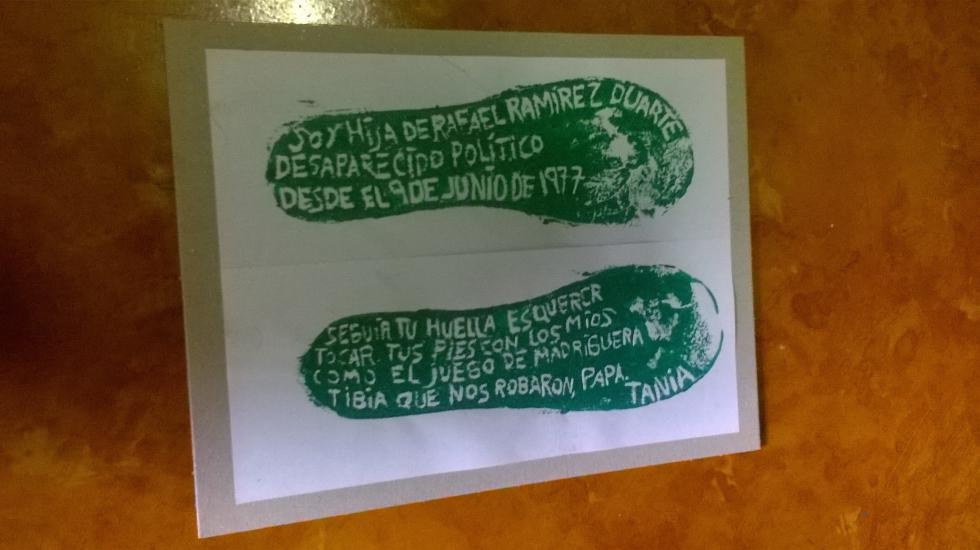 SOY HIJA DE RAFAEL RAMÍREZ DUARTE
DESAPARECIDO POLÍTICO
DESDE EL 9 DE JUNIO DE 1977
SEGUIR TU HUELLA ES QUERER
TOCAR TUS PIES CON LOS MIOS
COMO EL JUEGO DE MADRIGUERA
TIBIA QUE NOS ROBARON, PAPA.
TANIA